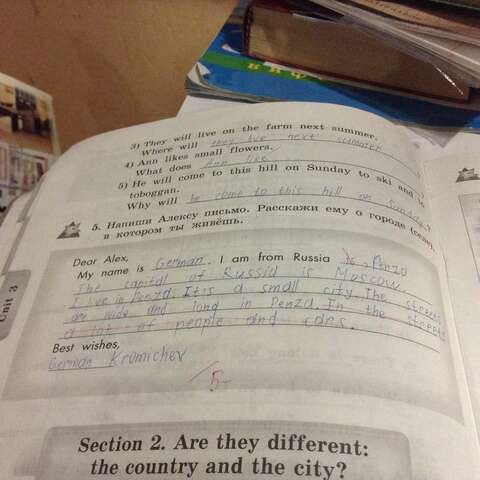 3) They will live on the farm next summer.
Where will they live next summer
4) Ann likes small flowers.
What does Ann like
5) He will come to this hill on Sunday to ski and to
toboggan.
Why will he come to this hill on Sunday?
5. Напиши Алексу письмо. Расскажи ему о городе (селе),
в котором ты живёшь.
Dear Alex,
My name is German. I am from Russia Penza
The capital of Russia is Moscow.
I live in Penza. It is a small city. The streets
are wide and long in Penza. In the streets
a lot of people and cars.
Best wishes,
German Kromichev
5-
Unit 3
Section 2. Are they different:
the country and the city?